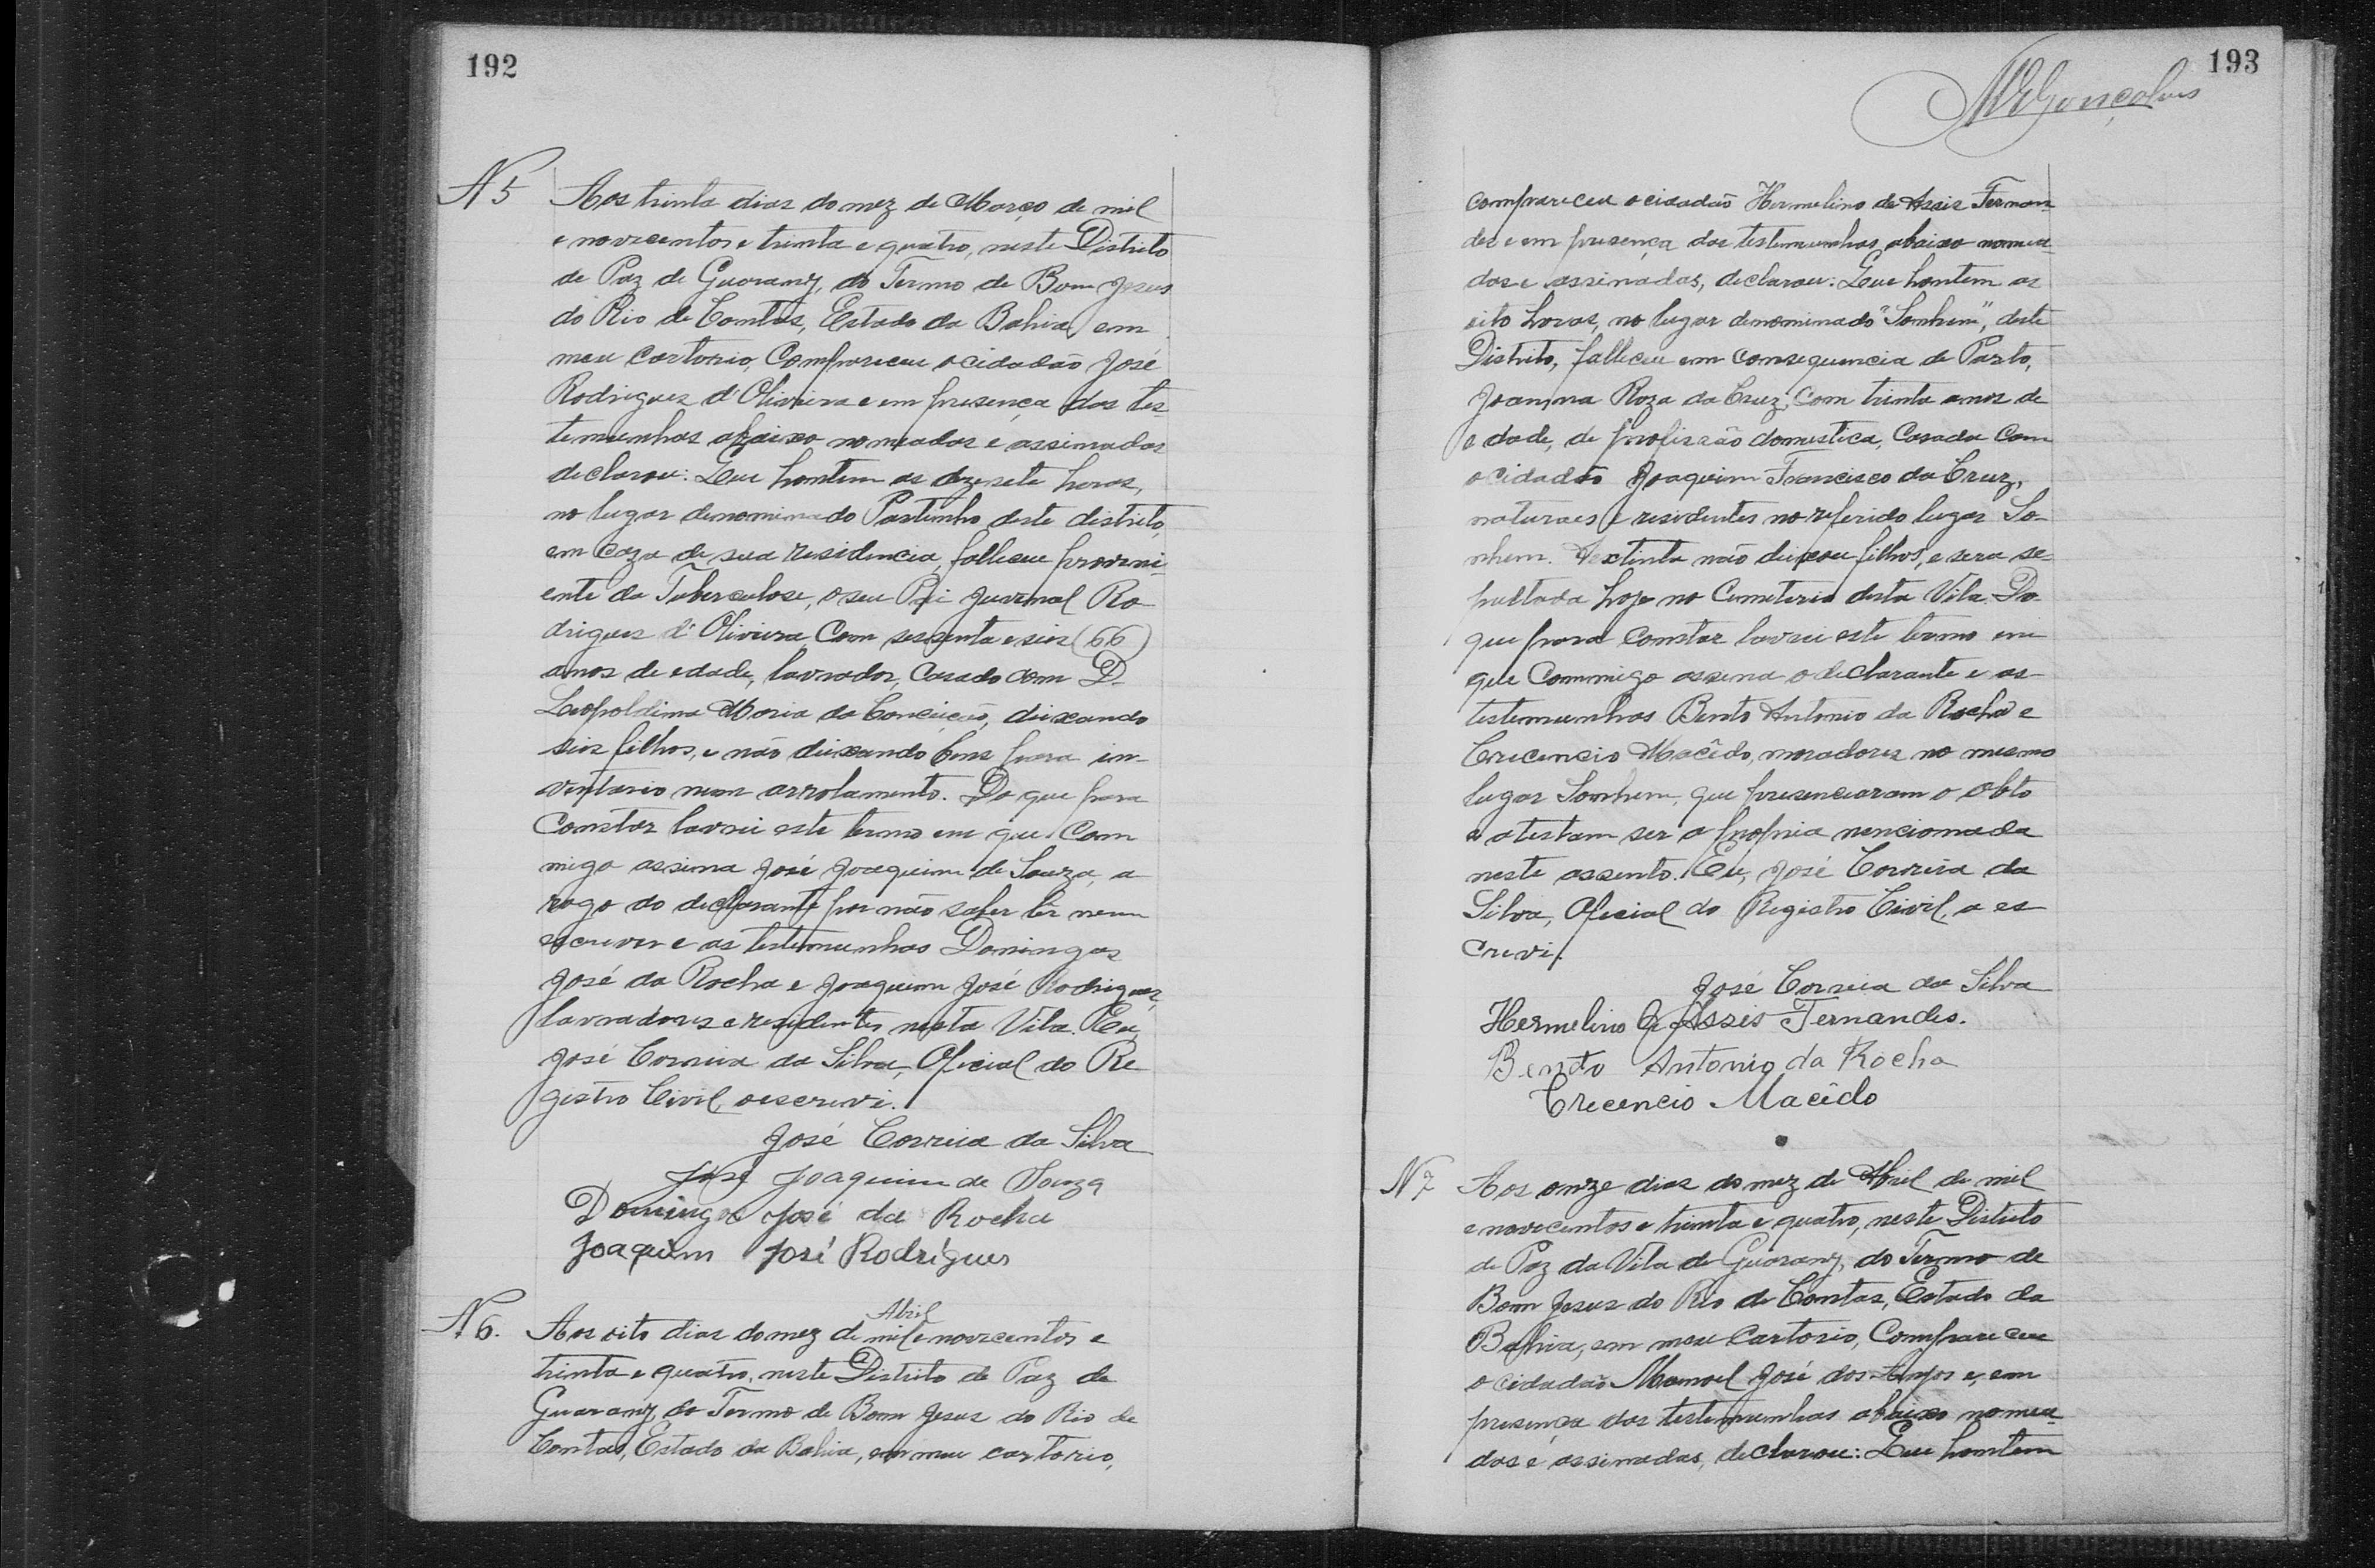 192
N 5
Aos trinta dias do mez de Março de mil
e novecentos e trinta e quatro, neste Distrito
de Paz de Guarany, do Termo de Bom Jesus
do Rio de Contas, Estado da Bahia, em
meu Cartorio, Compareceu o cidadão José
Rodrigues d'Oliveira e em presença das tes-
temunhas abaixo nomeadas e assinadas
declarou: Que hontem as dezesete horas,
no lugar denominado Pastinho deste distrito,
em Caza de sua residencia, falleceu proveni-
ente da Tuberculose, o seu Pai Juvenal Ro-
drigues d'Oliveira Com sessenta e seis (66)
anos de edade, lavrador, Casado com D.
Leopoldina Maria da Conceição, deixando
seis filhos, e não deixando bens para in-
ventario nem arrolamento. Do que para
Constar lavrei este termo em que Com
migo assina José Joaquim de Souza, a
rogo do declarante por não saber ler nem
escrever e as testemunhas Domingos
José da Rocha e Joaquim José Rodrigues,
lavradores e residentes nesta Vila. Eu,
José Correia da Silva, Oficial do Re
gistro Civil, o escrevi.
José Correia da Silva
José Joaquim de Souza
Domingos José da Rocha
Joaquim José Rodrigues
N 6.
Abril
Aos oito dias do mez de mil e novecentos e
trinta e quatro, neste Distrito de Paz de
Guarany, do Termo de Bom Jesus do Rio de
Contas, Estado da Bahia, em meu cartorio,
193
Gonçalves
compareceu o cidadão Hermelino de Assis Fernan-
des e em presença das testemunhas abaixo nomea-
das e assinadas, declarou: Que hontem as
oito horas, no lugar denominado "Sonhem", deste
Distrito, falleceu em consequencia de Parto,
Joanna Roza da Cruz, Com trinta anos de
edade, de profissão domestica, Casada Com
o cidadão Joaquim Francisco da Cruz,
naturaes e residentes no referido lugar So-
nhem. A extinta não deixou filhos, e sera se-
pultada hoje no Cemeterio desta Vila. Do
que para Constar lavrei este termo em
que Commigo assina o declarante e as
testemunhas Bento Antonio da Rocha e
Crecencio Macêdo, moradores no mesmo
lugar Sonhem, que presenciaram o obto
e atestam ser a propria mencionada
neste assento. Eu, José Correia da
Silva, Oficial do Registro Civil, o es
crevi.
José Correia da Silva
Hermelino de Assis Fernandes.
Bento Antonio da Rocha
Crecencio Macêdo
N 7
Aos onze dias do mez de Abril de mil
e novecentos e trinta e quatro, neste Distrito
de Paz da Vila de Guarany, do Termo de
Bom Jesus do Rio de Contas, Estado da
Bahia, em meu Cartorio, Compareceu
o cidadão Manoel José dos Anjos e, em
presença das testemunhas abaixo nomea-
das e assinadas, declarou: Que hontem